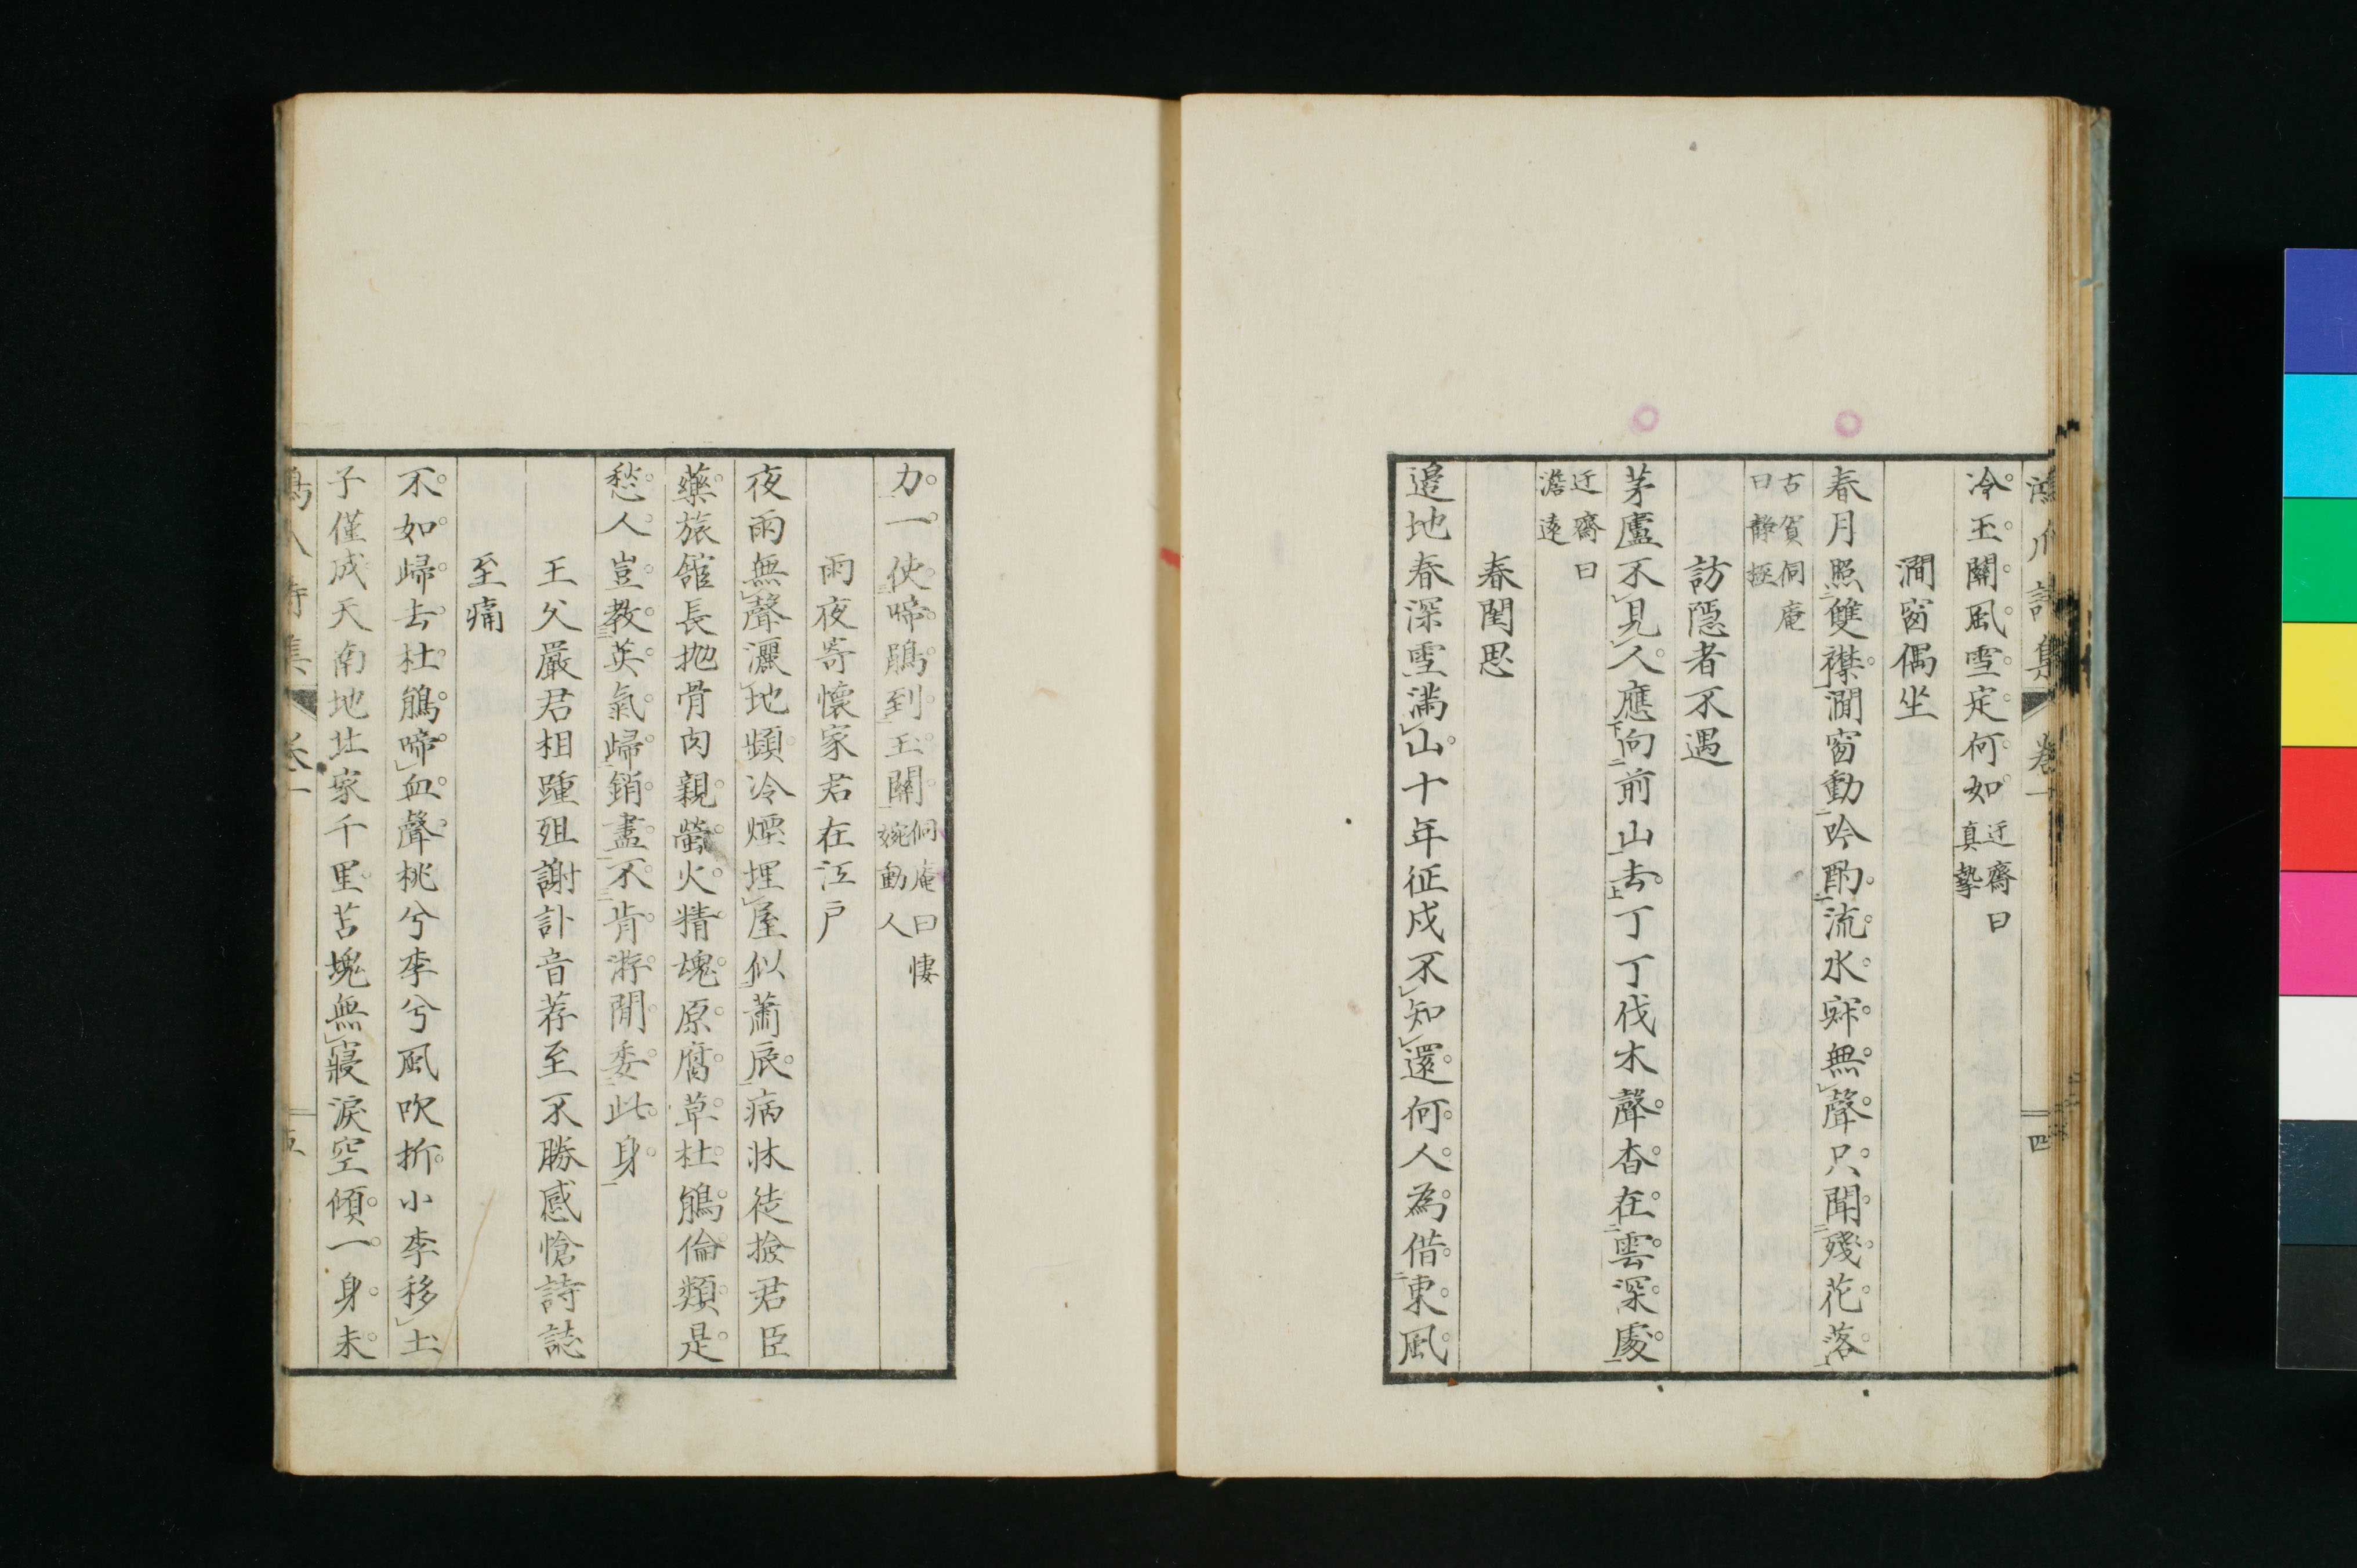 冷玉關風雪定何如 迂齋曰真摯
澗窗偶坐
春月照雙襟澗窗動吟酌流水寂無聲只聞殘花落
古賀侗庵曰靜極
訪隱者不遇
茅廬不見人應向前山去丁丁伐木聲杳在雲深處
迂齋曰澹遠
春閨思
邊地春深雪滿山十年征戍不知還何人為借東風
力一使啼鵑到玉關 侗庵曰悽婉動人
雨夜寄懷家君在江戶
夜雨無聲灑地頻冷煙埋屋似蕭辰病牀徒撿君臣
藥旅館長拋骨肉親螢火精魂原腐草杜鵑倫類是
愁人豈教英氣歸銷盡不肯游閒委此身
王父嚴君相踵殂謝訃音荐至不勝感愴詩誌
至痛
不如歸去杜鵑啼血聲桃兮李兮風吹折小李移土
子僅成天南地北家千里苫塊無寢淚空傾一身未